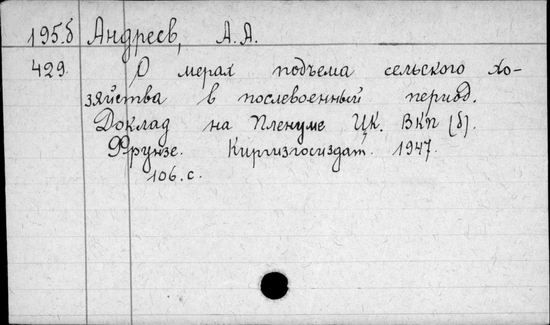 195б Андреев, А.А.
429. О мерах подъема сельского хо-
зяйства в послевоенный период.
Доклад на Пленуме ЦК. ВКП (б).
Фрунзе. Киргизгосиздат. 1947.
106.с.